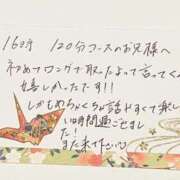 16時 120分コースのお兄様へ
初めてロングで取ったよって言ってくれて
嬉しかったです!!
しかもめちゃくちゃ話しやすくて楽し
い時間過ごせまし
た!
また来て下さい